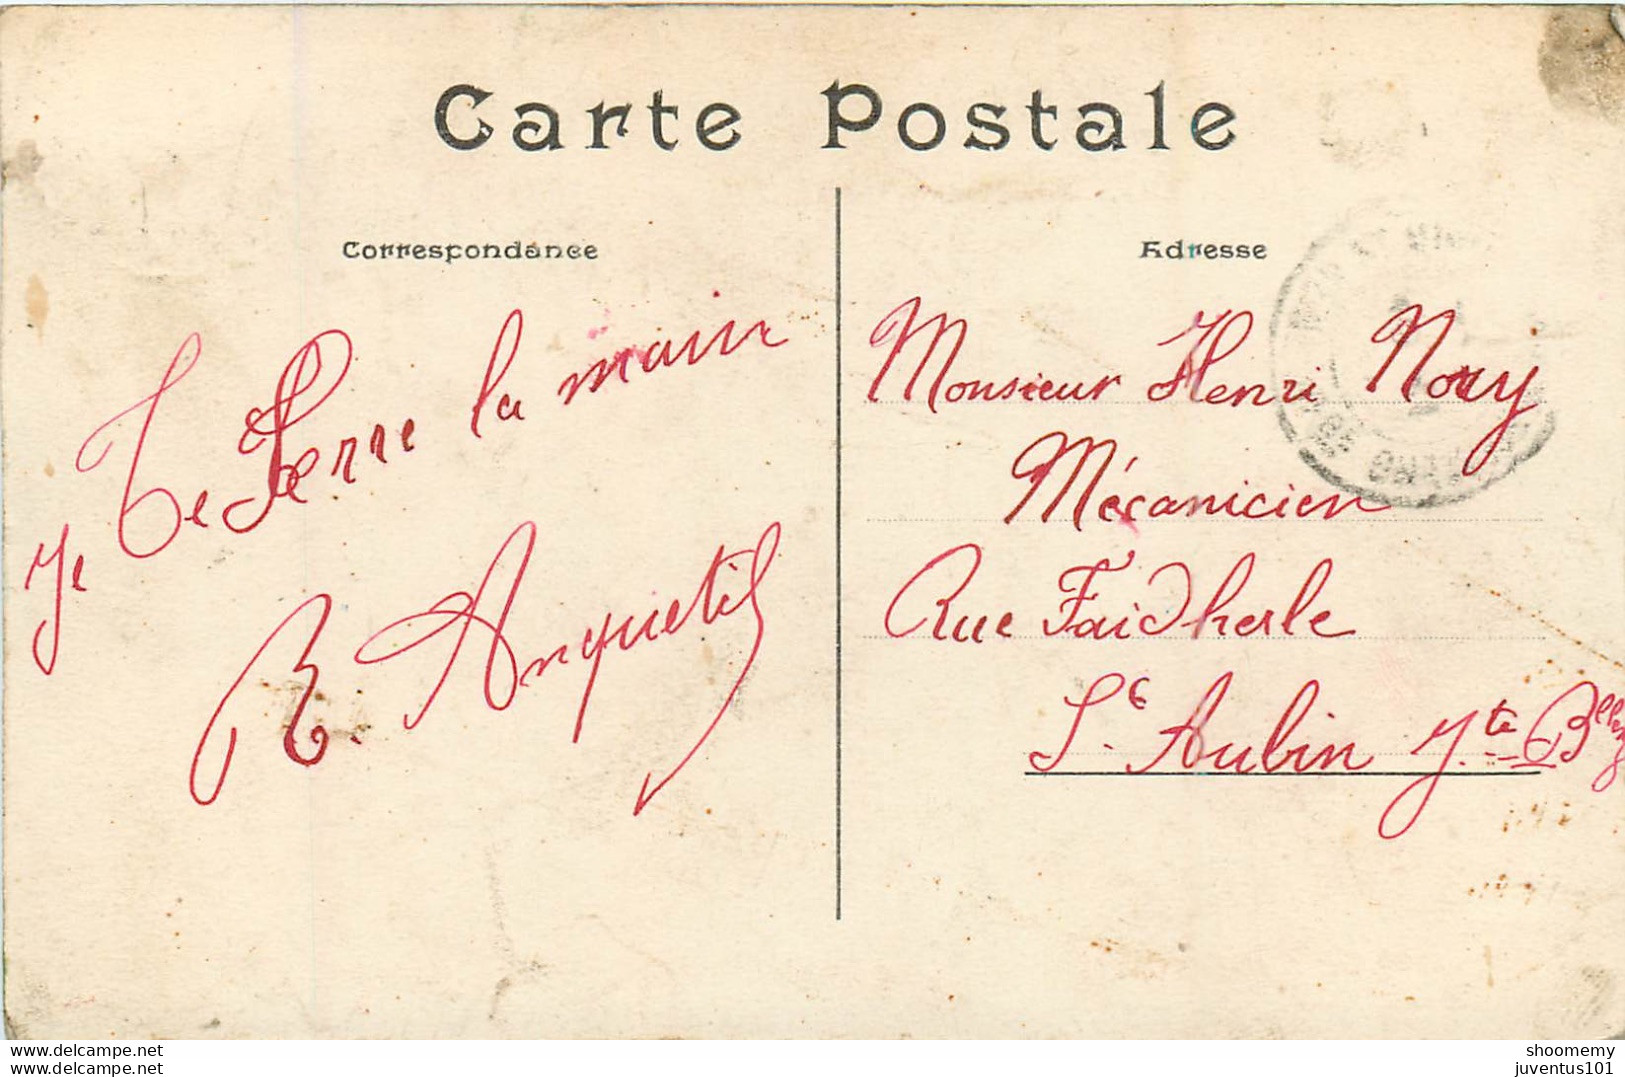 Carte Postale
Correspondance
Je Te Serre la main
R. Anquetil
Adresse
Monsieur Henri Nouy
Mécanicien
Rue Faidherbe
St Aubin Jte B
www.delcampe.net
shoomemy
juventus101